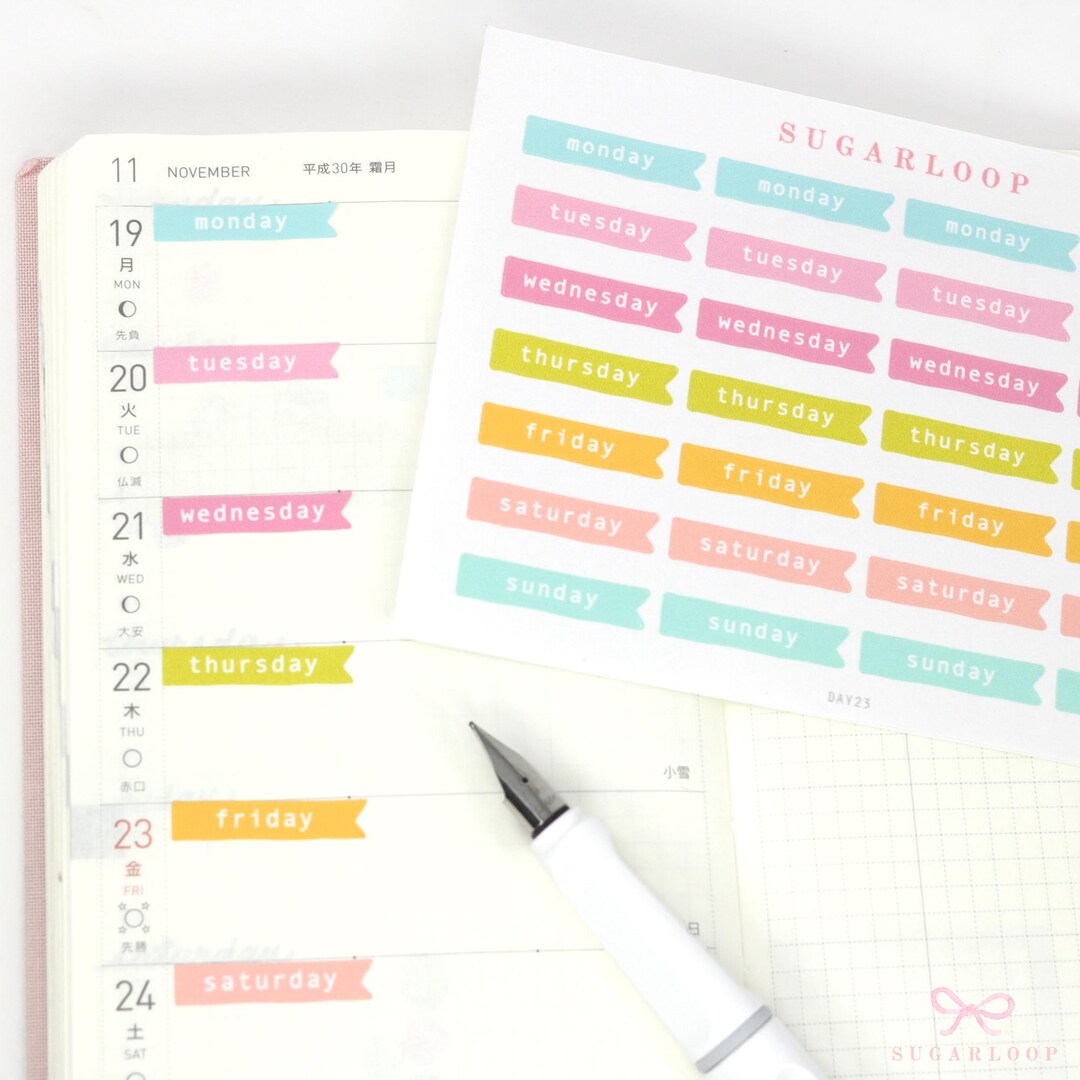 11 NOVEMBER 平成30年 霜月
19
monday
月
MON
先負
20
tuesday
火
TUE
仏滅
21
wednesday
水
WED
大安
22
thursday
木
THU
赤口
小雪
23
friday
金
FRI
先勝
日
24
saturday
土
SAT
SUGARLOOP
monday monday monday
tuesday tuesday tuesday
wednesday wednesday wednesday
thursday thursday thursday
friday friday friday
saturday saturday saturday
sunday sunday sunday
DAY23
SUGARLOOP